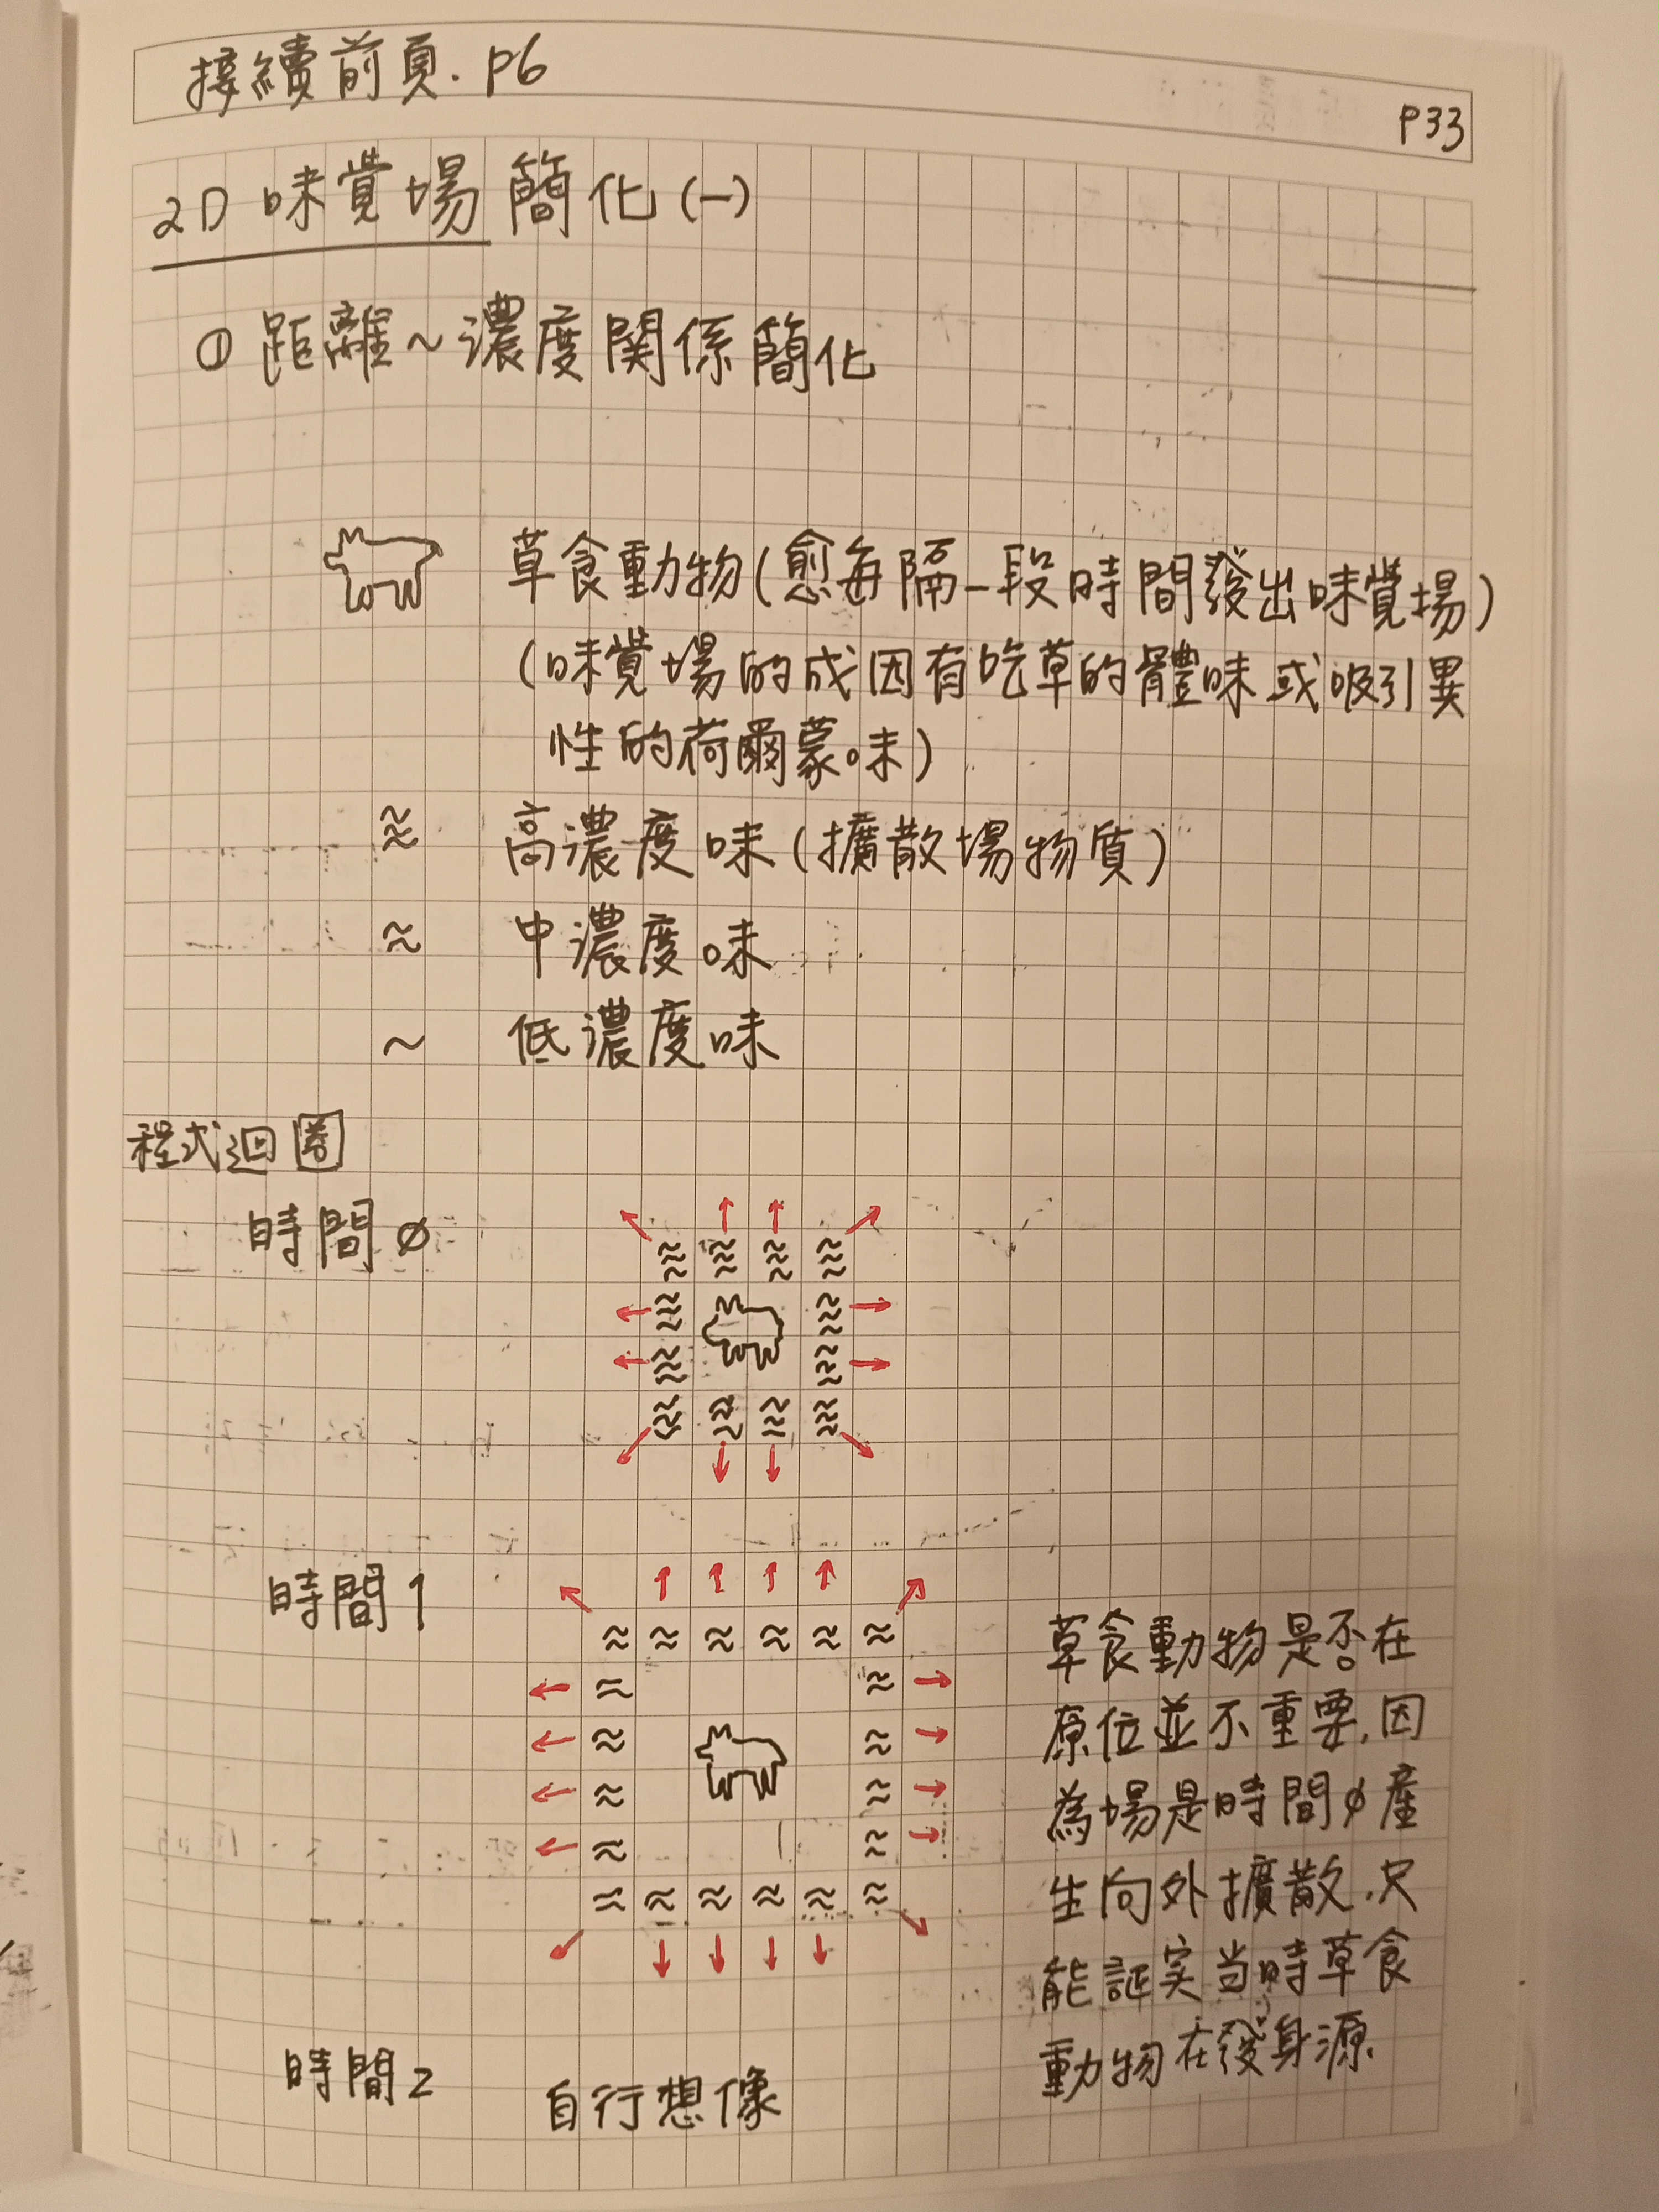 接續前頁. P6
P33
2D 味覚場簡化(一)
① 距離~濃度関係簡化
草食動物(愈每隔一段時間發出味覚場)
(味覚場的成因有吃草的體味或吸引異
性的荷爾蒙味)
≋ 高濃度味(擴散場物質)
≈ 中濃度味
~ 低濃度味
程式迴圈
時間ø
時間1
草食動物是否在
原位並不重要,因
為場是時間ø產
生向外擴散,只
能証実当時草食
動物在發身源.
時間2 自行想像